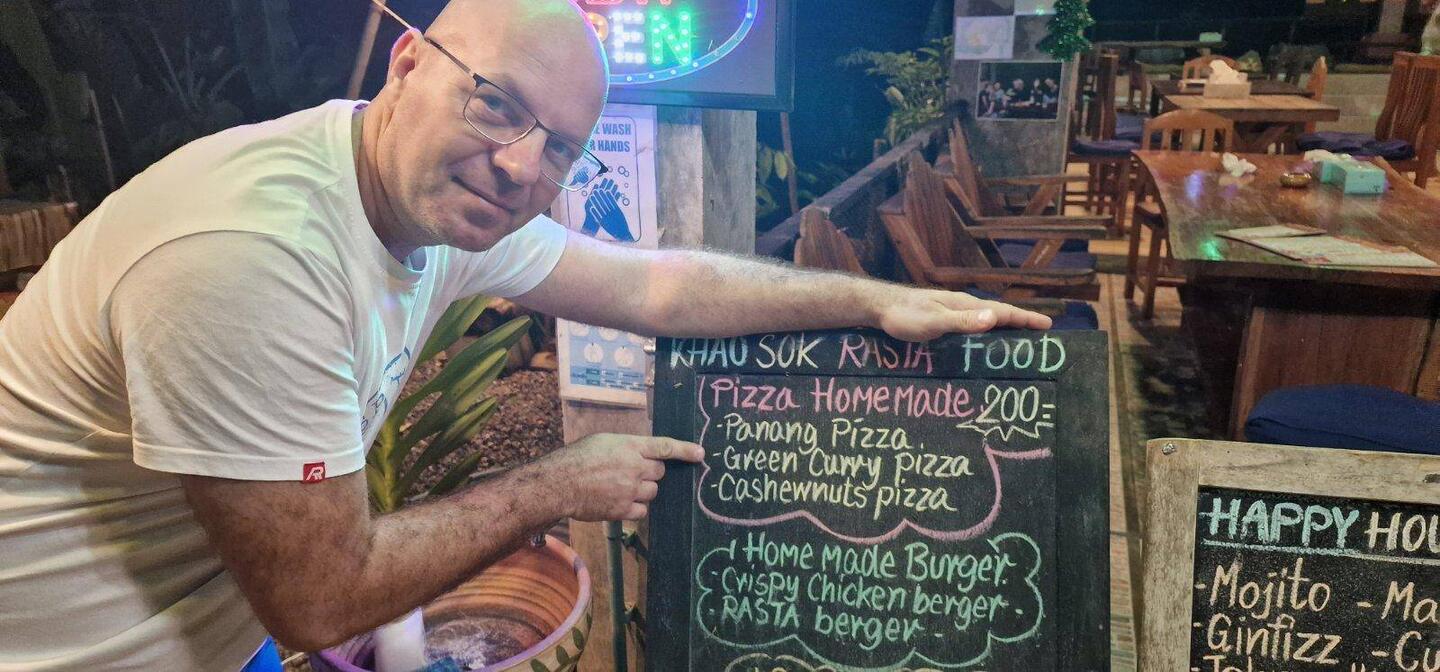 EN
WASH
HANDS
KHAO SOK RASTA FOOD
Pizza Homemade 200=
-Panang Pizza.
-Green Curry pizza
-Cashewnuts pizza
Home made Burger
-Crispy Chicken berger.
-RASTA berger.
HAPPY HOU
-Mojito -Ma
-Ginfizz